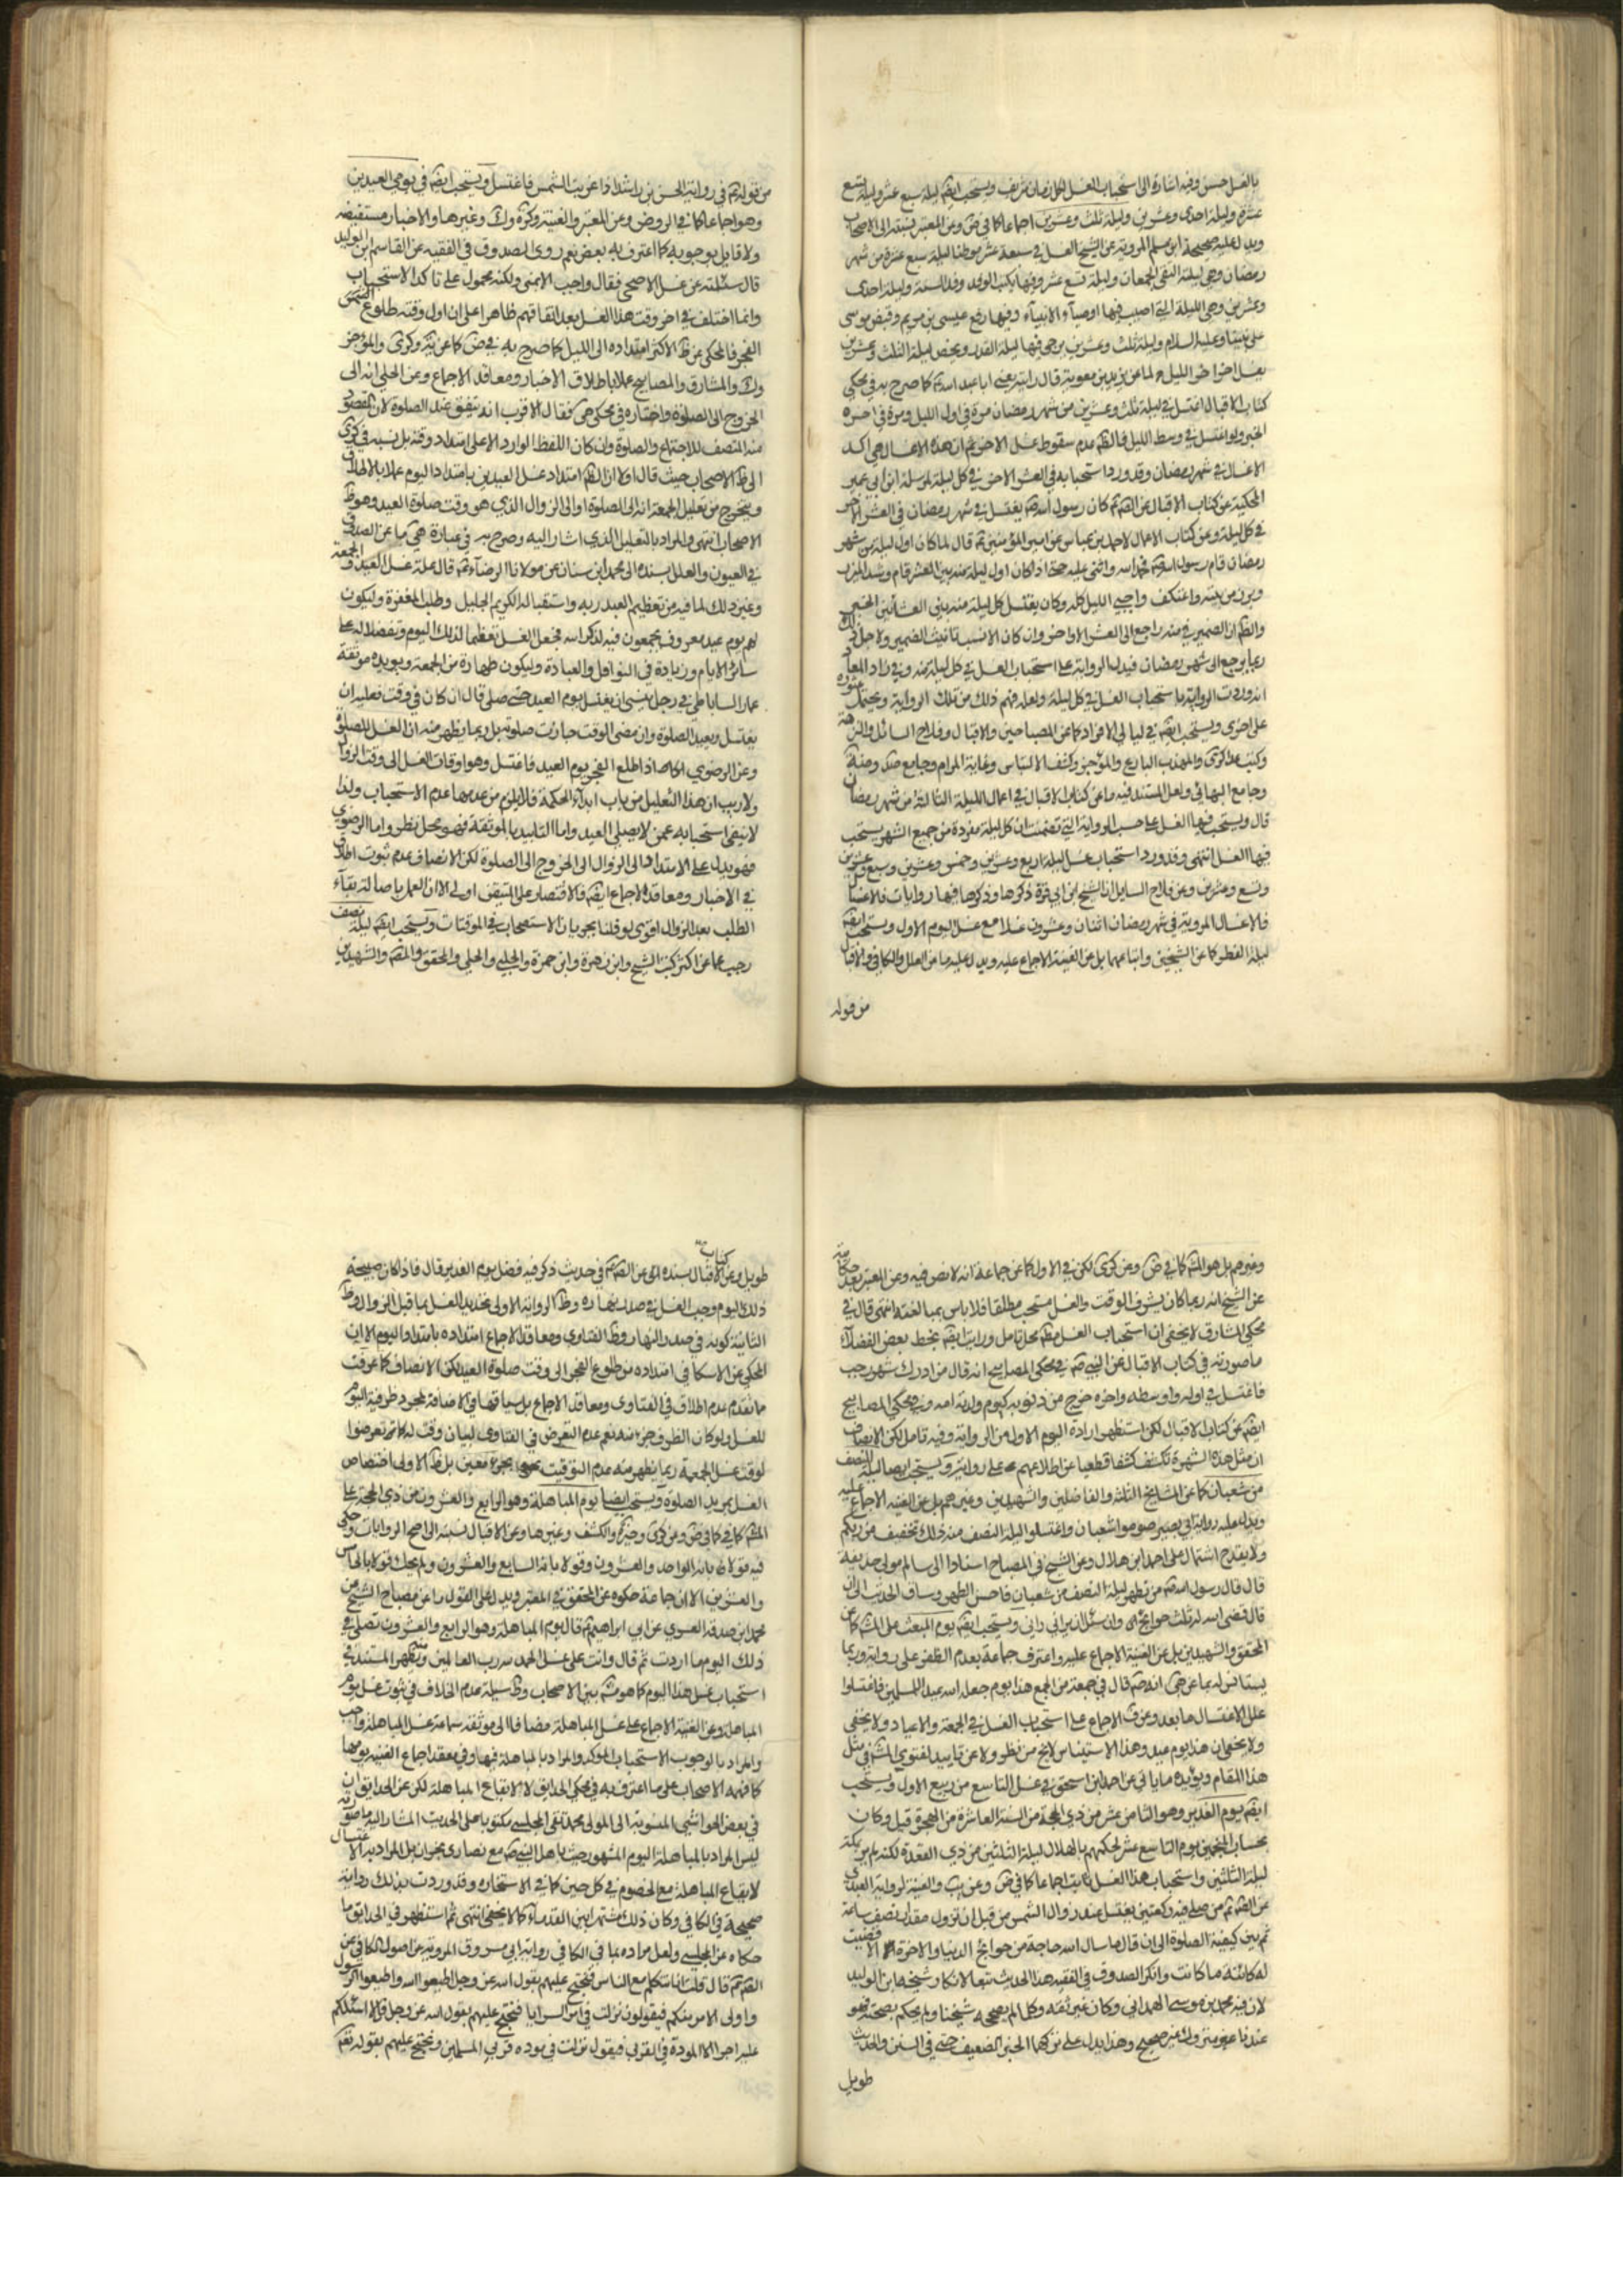 بالغسل حسن وفيه اشارة الى استحباب الغسل لكل زمان شريف ويستحب ايضا ليلة سبع عشر وليلة تسع
عشرة وليلة احدى وعشرين وليلة ثلث وعشرين اجماعا كما في ض وعن المعتبر نسبته الى الاصحاب
ويدل عليه صحيحة ابن مسلم المروية عن الشيخ الغسل في سبعة عشر موطنا ليلة سبع عشرة من شهر
رمضان وهي ليلة التقى الجمعان وليلة تسع عشر وفيها يكتب الوفد وفد السنة وليلة احدى
وعشرين وهي الليلة التي اصيب فيها اوصياء الانبياء وفيها رفع عيسى بن مريم وقبض موسى
على نبينا وعليه السلام وليلة ثلث وعشرين يرجى فيها ليلة القدر ويختص ليلة الثلث وعشرين
بغسل اخر اخر الليل لما عن بريد بن معوية قال رايته يعني ابا عبد الله كما صرح به في محكي
كتاب الاقبال اغتسل في ليلة ثلث وعشرين من شهر رمضان مرة في اول الليل ومرة في اخره
الخبر ولو اغتسل في وسط الليل فالظم عدم سقوط غسل الاخر ثم ان هذه الاغسال هي اكد
الاغسال في شهر رمضان وقد ورد استحبابه في العشر الاخر في كل ليلة لمرسلة ابن ابي عمير
المحكية عن كتاب الاقبال عن الصم كان رسول الله يغتسل في شهر رمضان في العشر الاخر
في كل ليلة وعن كتاب الاعمال لاحمد بن عياش عن امير المؤمنين قال لما كان اول ليلة من شهر
رمضان قام رسول الله فحمد الله واثنى عليه حتى اذا كان اول ليلة من العشر قام وشد المئزر
وبرز من بيته واعتكف واحيى الليل كله وكان يغتسل كل ليلة منه بين العشائين الخبر
والظم ان الضمير في منه راجع الى العشر الاواخر وان كان الانسب تانيث الضمير ولاجل ذلك
ربما يرجع الى شهر رمضان فيدل الرواية على استحباب الغسل في كل ليلة منه وفي زاد المعاد
انه وردت الرواية باستحباب الغسل في كل ليلة ولعله فهم ذلك من تلك الرواية ويحتمل عثوره
على اخرى ويستحب ايضا في ليالي الافراد كما عن المصباحين والاقبال وفلاح السائل والنزهة
وكتب وكرى والمهذب البارع والموجز وكشف الالتباس وغاية المرام وجامع
وجامع البهائي ولعل المستند فيه ما عن كتاب الاقبال في اعمال الليلة الثالثة من شهر رمضان
قال ويستحب فيها الغسل على حسب الرواية التي تضمنت ان كل ليلة مفردة من جميع الشهر يستحب
فيها الغسل انتهى وقد ورد استحباب غسل ليلة اربع وعشرين وخمس وعشرين وسبع وعشرين
وتسع وعشرين وعن فلاح السايل ان الشيخ ابن ابي قرة ذكرها وذكر فيها روايات
فالاغسال المروية في شهر رمضان اثنان وعشرون غسلا مع غسل اليوم الاول ويستحب ايضا
ليلة الفطر كما عن الشيخين واتباعهما بل عن الغنية الاجماع عليه ويدل عليه ما عن العلل والكافي والاقبال
من قوله
من قوله في رواية الحسن بن راشد اذا غربت الشمس فاغتسل ويستحب ايضا في يومي العيدين
وهو اجماعا كما في الروض وعن المعتبر والغنية وكره وك وغيرها والاخبار مستفيضة
ولا قايل بوجوبه كما اعترف به بعض نعم روى الصدوق في الفقيه عن القاسم بن الوليد
قال سئلته عن غسل الاضحى فقال واجب الا بمنى ولكنه محمول على تاكد الاستحباب
وانما اختلف في اخر وقت هذا الغسل بعد اتفاقهم ظاهرا على ان اول وقته طلوع
الفجر فالمحكي عن ظ الاكثر امتداده الى الليل كما صرح به في ض كما عن وكرى والموجز
وك والمشارق والمصابيح عملا باطلاق الاخبار ومعاقد الاجماع وعن الحلي انه الى
الخروج الى الصلوة واختاره في محكي هى فقال الاقرب انه تضيق عند الصلوة لان المقصود
منه التنظف للاجتماع والصلوة وان كان اللفظ الوارد الا على امتداد وقته بل نسبه في كرى
الى ظ الاصحاب حيث قال اولا ان الظم امتداد غسل العيدين بامتداد اليوم عملا بالاطلاق
ويتخرج من تعليل الجمعة انه الى الصلوة او الى الزوال الذي هو وقت صلوة العيد وهو ظ
الاصحاب انتهى والمراد بالتعليل الذي اشار اليه وصرح به في عبارة هى ما عن الصدوق
في العيون والعلل بسنده الى محمد ابن سنان عن مولانا الرضا قال علة غسل العيد والجمعة
وغير ذلك لما فيه من تعظيم العبد ربه واستقباله الكريم الجليل وطلب المغفرة وليكون
لهم يوم عيد معروف يجتمعون فيه لذكر الله فجعل الغسل تعظيما لذلك اليوم وتفضيلا له على
سائر الايام وزيادة في النوافل والعبادة وليكون طهارة من الجمعة ويؤيده موثقة
عمار الساباطي في رجل ينسى ان يغتسل يوم العيد حتى صلى قال ان كان في وقت فعليه ان
يغتسل ويعيد الصلوة وان مضى الوقت جازت صلوته بل ربما يظهر منه ان الغسل للصلوة
وعن الرضوي اذا طلع الفجر يوم العيد فاغتسل وهو اوقات الغسل الى وقت الزوال
ولا ريب ان هذا التعليل من باب ابداء الحكمة فلا يلزم من عدمها عدم الاستحباب ولذا
لا ينبغي استحبابه عمن لا يصلي العيد واما التاييد بالموثقة فهو محل نظر واما الرضوي
فهو يدل على الامتداد الى الزوال الى الخروج الى الصلوة لكن الانصاف عدم ثبوت اطلاق
في الاخبار ومعاقد الاجماع ايضا فالاقتصار على المتيقن اولى الا ان العمل باصالة بقاء
الطلب بعد الزوال اقوى لو قلنا بجريان الاستصحاب في الموقتات ويستحب ايضا ليلة نصف
رجب كما عن اكثر كتب الشيخ وابن زهرة وابن حمزة والحلبي والحلي والمحقق والشهيدين
وغيرهم بل هو المشهور كما في ض وعن كرى لكن في الاول كما عن جماعة انه لا نص فيه وعن المعتبر بعد حكايته
عن الشيخ انه ربما كان لشرف الوقت والغسل مستحب مطلقا فلا باس بمتابعته انتهى قال في
محكي المشارق لا يخفى ان استحباب الغسل مطم محل تامل ورايت ايضا بخط بعض الفضلاء
ما صورته في كتاب الاقبال عن النبي وفي محكي المصابيح انه قال من ادرك شهر رجب
فاغتسل في اوله واوسطه واخره خرج من ذنوبه كيوم ولدته امه وفي محكي المصابيح
ايضا عن كتاب الاقبال لكن استظهر ارادة اليوم الاول من الرواية وفيه تامل لكن الانصاف
ان مثل هذه الشهرة تكشف كشفا قطعيا عن اطلاعهم على رواية ويستحب ايضا ليلة النصف
من شعبان كما عن المشايخ الثلثة والفاضلين والشهيدين وغيرهم بل عن الغنية الاجماع عليه
ويدل عليه رواية ابي بصير صوموا شعبان واغتسلوا ليلة النصف منه ذلك تخفيف من ربكم
ولا يقدح اشتمال على احمد ابن هلال وعن الشيخ في المصباح اسنادا الى سالم مولى حذيفة
قال قال رسول الله من تطهر ليلة النصف من شعبان فاحسن الطهر وساق الحديث الى ان
قال قضى الله له ثلث حوائج وان سئل ان يراني راني ويستحب ايضا يوم المبعث على المشهور كما عن
المحقق والشهيدين بل عن الغنية الاجماع عليه واعترف جماعة بعدم الظفر على رواية وربما
يستانس له بما عن هى انه قال في جمعة من الجمع هذا يوم جعله الله عيد المسلمين فاغتسلوا
علل الاغتسال بها بعد وعن ف الاجماع على استحباب الغسل في الجمعة والاعياد ولا يخفى
ولا يخفى ان هذا يوم عيد وهذا الاستيناس لا يخ من نظر ولا عن تاييد لفتوى المشهور في مثل
هذا المقام ويؤيده ما ياتي عن احمد ابن اسحق في غسل التاسع من ربيع الاول ويستحب
ايضا يوم الغدير وهو الثامن عشر من ذي الحجة من السنة العاشرة من الهجرة قيل وكان
بحساب المنجمين يوم التاسع عشر لحكمهم بالهلال ليلة الثلثين من ذي القعدة لكنه لم ير بمكة
ليلة الثلثين واستحباب هذا الغسل ثابت اجماعا كما في ض وعن يب والغنية لرواية العبدي
عن الصم من صلى فيه ركعتين يغتسل عند زوال الشمس من قبل ان تزول مقدار نصف ساعة
ثم بين كيفية الصلوة الى ان قال ما سال الله حاجة من حوائج الدنيا والاخرة الا قضيت
له كائنة ما كانت وانكر الصدوق في الفقيه هذا الحديث تبعا لانكار شيخه ابن الوليد
لان فيه محمد بن موسى الهمداني وكان غير ثقة وكلما لم يصححه شيخنا ولم يحكم بصحته فهو
عندنا متروك غير صحيح وهذا يدل على تركهما الخبر الضعيف حتى في السنن والحديث
طويل
طويل وعن كتاب الاقبال بسنده الى عن الصم في حديث ذكر فيه فضل يوم الغدير قال فاذا كان صبيحة
ذلك اليوم وجب الغسل في صدر نهاره وظ الرواية الاولى تحديد الغسل بما قبل الزوال وظ
الثانية كونه في صدر النهار وظ الفتاوى ومعاقد الاجماع امتداده بامتداد اليوم الا ان
المحكي عن الاسكافي امتداده من طلوع الفجر الى وقت صلوة العيد لكن الانصاف كما عرفت
ما تقدم عدم اطلاق في الفتاوى ومعاقد الاجماع بل سياقها في الاضافة لمجرد ظرفية اليوم
للغسل ولو كان الظرف جزء منه نعم عدم التعرض في الفتاوى لبيان وقت له كما تعرضوا
لوقت غسل الجمعة ربما يظهر منه عدم التوقيت بجزء معين بل ظ الاولى اختصاص
الغسل بمريد الصلوة ويستحب ايضا يوم المباهلة وهو الرابع والعشرون من ذي الحجة على
المشهور كما في كما في ض وعن كرى وخيره والكشف وغيرها وعن الاقبال نسبته الى اصح الروايات وحكى
فيه قولان بانه الواحد والعشرون وقولا بانه السابع والعشرون ولم يحك قولا بالخامس
والعشرين الا ان جماعة حكوه عن المحقق في المعتبر ويدل على القول ما عن مصباح الشيخ عن
محمد ابن صدقة العنبري عن ابي ابراهيم قال يوم المباهلة وهو الرابع والعشرون تصلي في
ذلك اليوم ما اردت ثم قال وانت على غسل الحمد لله رب العالمين ويظهر المستند في
استحباب غسل هذا اليوم كما هو مشهور بين الاصحاب وظ وسيلة عدم الخلاف في ثبوت غسل يوم
المباهلة وعن الغنية الاجماع على غسل المباهلة مضافا الى موثقة سماعة غسل المباهلة واجب
والمراد بالوجوب الاستحباب المؤكد والمراد بالمباهلة فيها وفي معقد اجماع الغنية يومها
كما فهمه الاصحاب على ما اعترف به في محكي الحدايق لا ايقاع المباهلة لكن عن الحدايق ان
في بعض الحواشي المنسوبة الى المولى محمد تقي المجلسي مكتوبا على الحديث المشار اليه ما صورته
ليس المراد بالمباهلة اليوم المشهور حيث باهل النبي مع نصارى نجران بل المراد به الاغتسال
لايقاع المباهلة مع الخصوم في كل حين كما في الاستخاره وقد وردت بذلك رواية
صحيحة في الكافي وكان ذلك مشتهرا بين القدماء كما لا يخفى انتهى ثم استظهر في الحدايق ما
حكاه عن المجلسي ولعل مراده بما في الكافي رواية ابي مسروق المروية عن اصول الكافي عن
الصم قال قلت انا نتكلم مع الناس فنحتج عليهم بقول الله عز وجل اطيعوا الله واطيعوا الرسول
واولي الامر منكم فيقولون نزلت في امراء السرايا فنحتج عليهم بقول الله عز وجل قل لا اسئلكم
عليه اجرا الا المودة في القربى فيقول نزلت في مودة قربى المسلمين ونحتج عليهم بقوله تعم